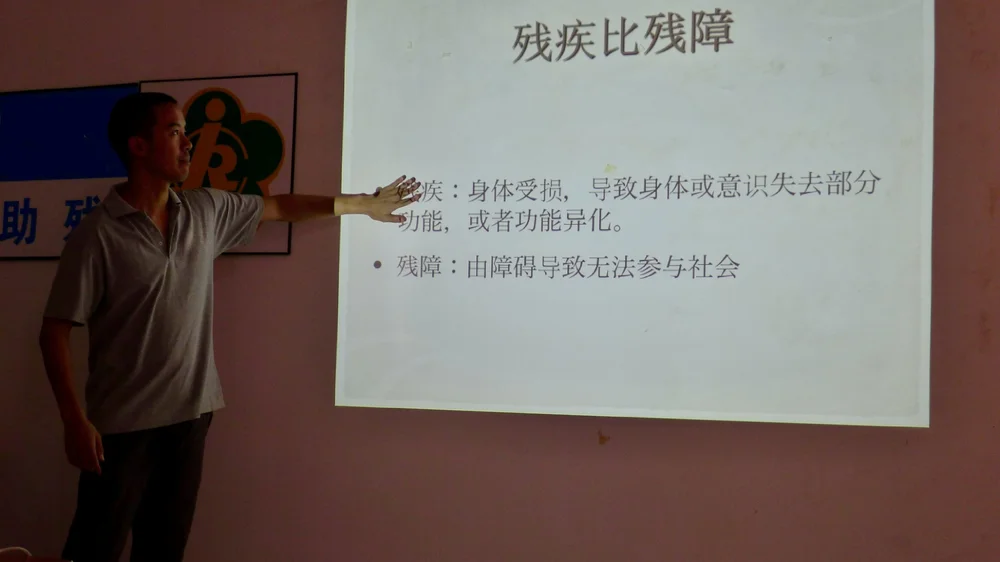 残疾比残障
助 残
残疾：身体受损，导致身体或意识失去部分
功能，或者功能异化。
• 残障：由障碍导致无法参与社会